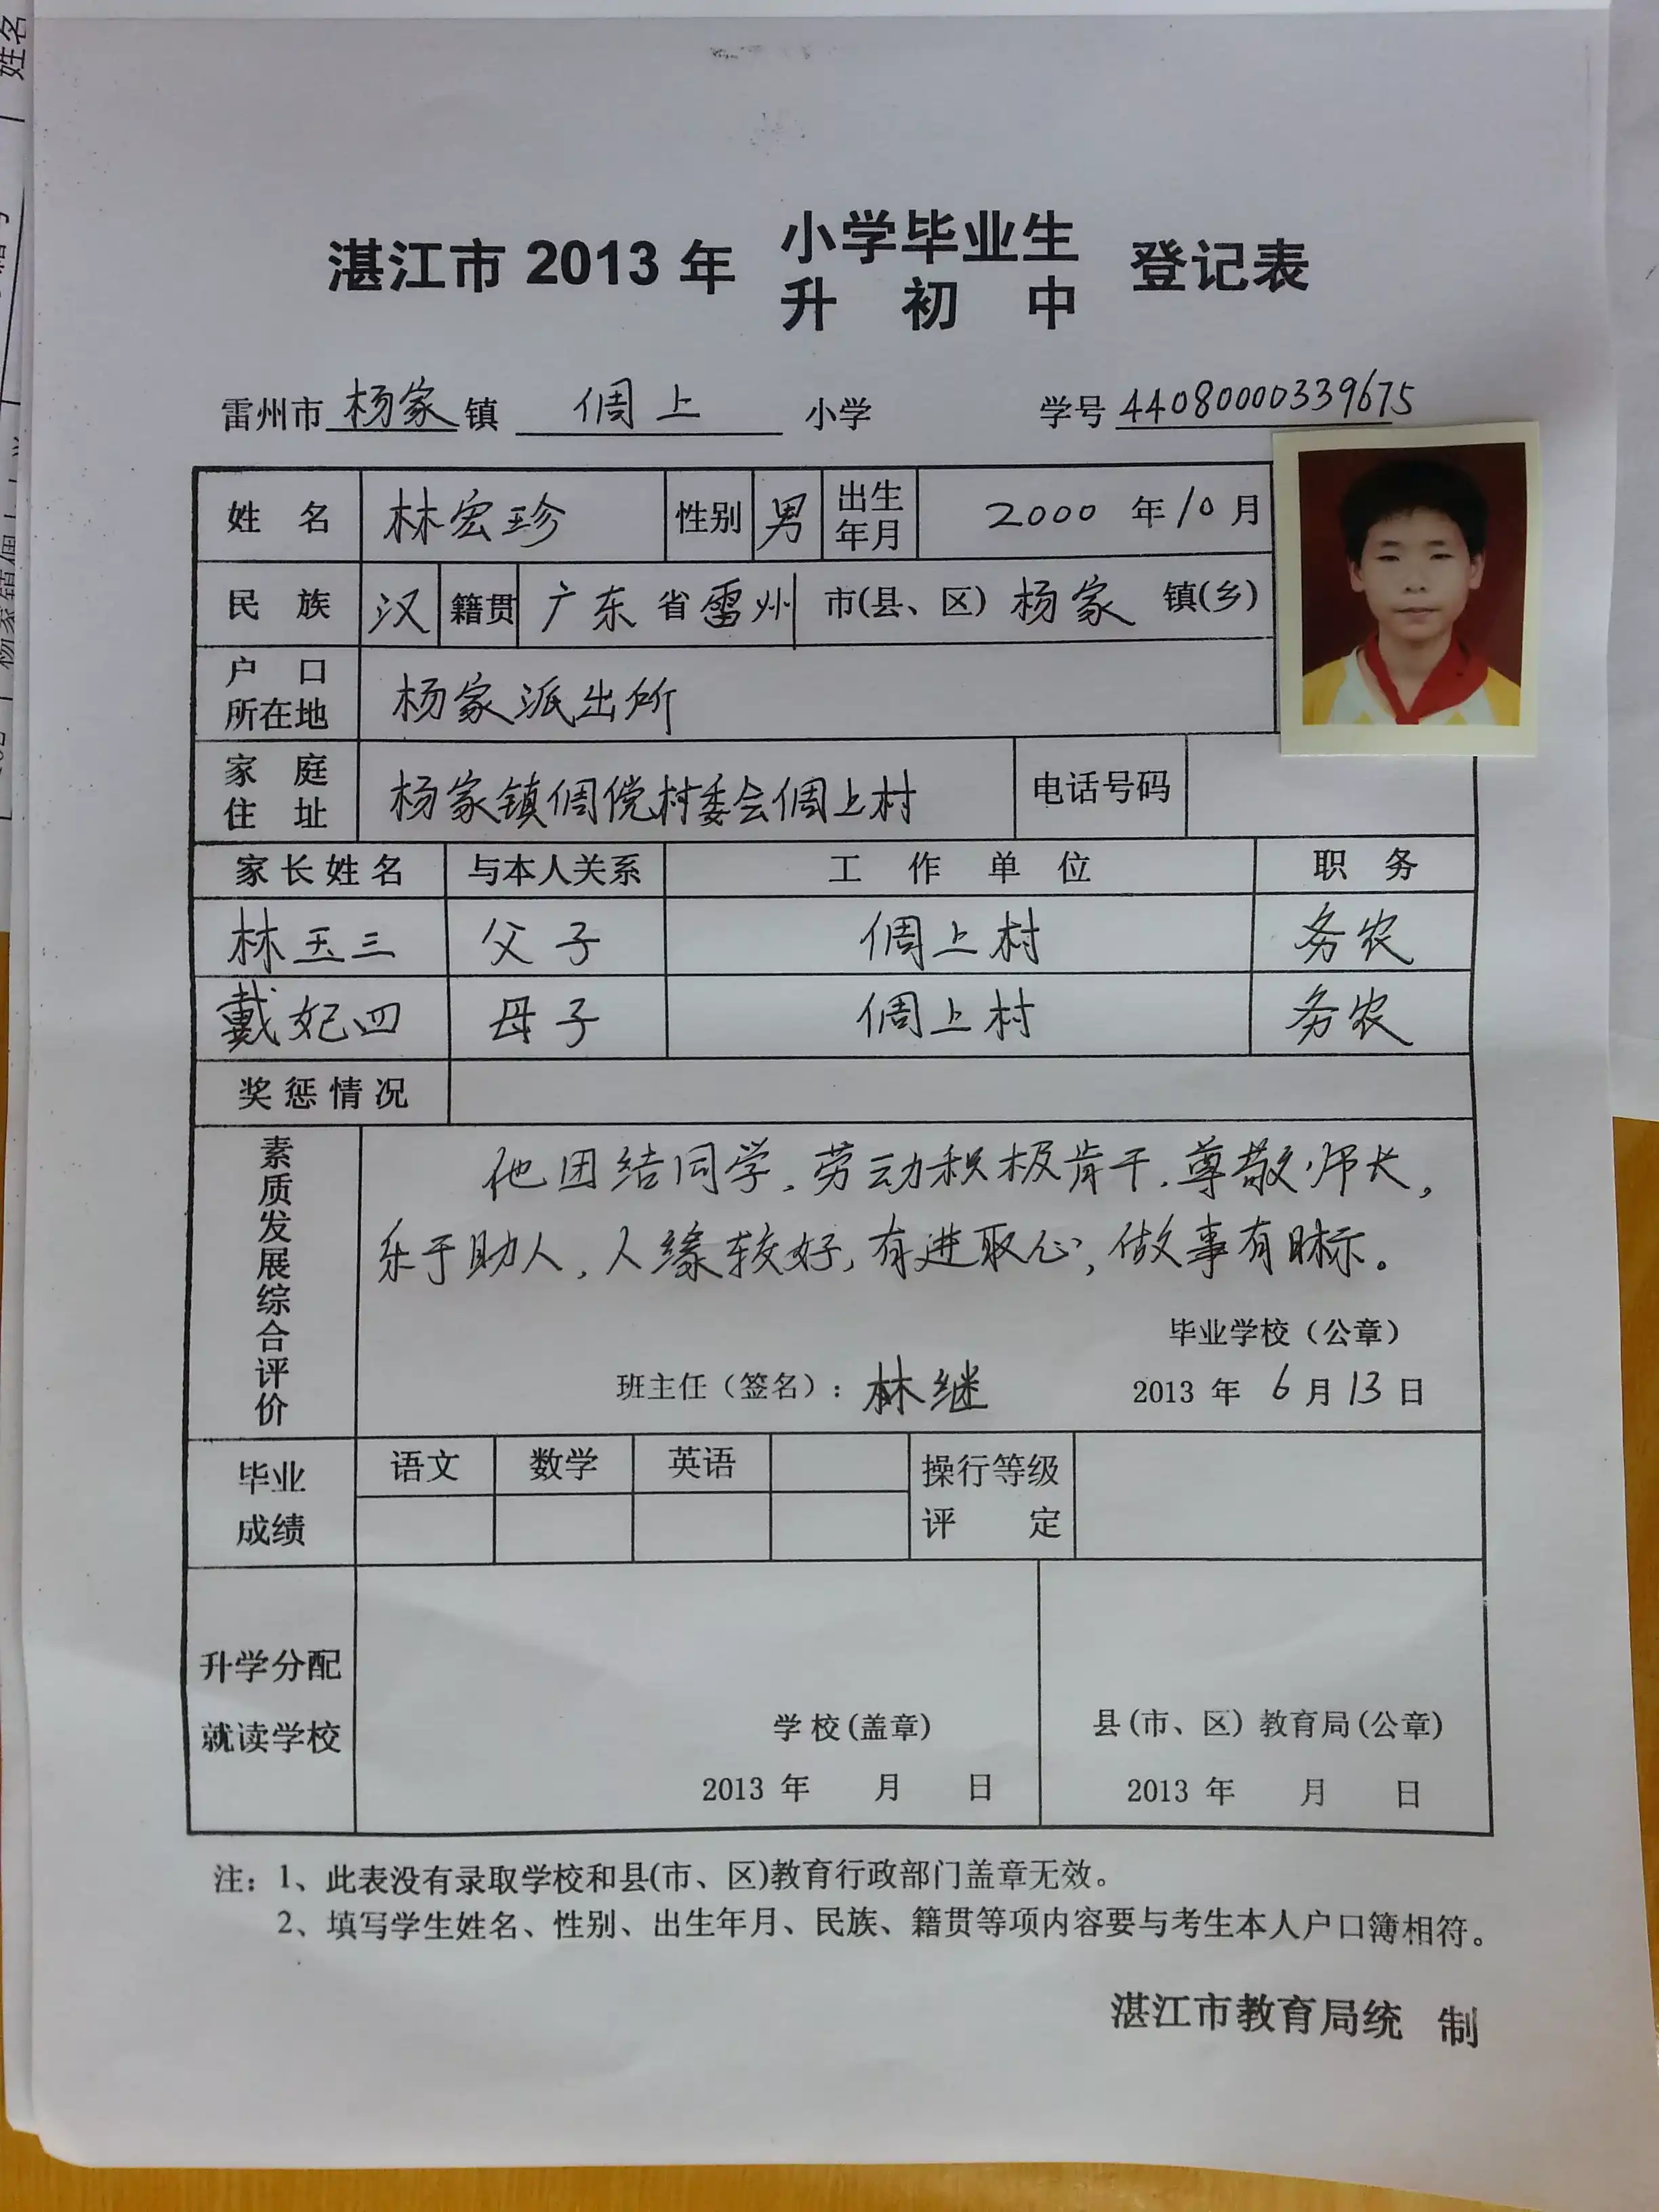 湛江市 2013 年 小学毕业生 登记表
升 初 中
雷州市 杨家 镇 倜上 小学 学号 44080000339675
姓 名 林宏珍 性别 男 出生年月 2000 年 10 月
民 族 汉 籍贯 广东 省 雷州 市(县、区) 杨家 镇(乡)
户 口 所在地 杨家派出所
家 庭 住 址 杨家镇倜傥村委会倜上村 电话号码
家长姓名 与本人关系 工 作 单 位 职 务
林玉三 父子 倜上村 务农
戴妃四 母子 倜上村 务农
奖惩情况
素质发展综合评价
他团结同学、劳动积极肯干、尊敬师长,
乐于助人,人缘较好,有进取心,做事有目标。
毕业学校(公章)
班主任(签名): 林继 2013 年 6 月 13 日
毕业成绩 语文 数学 英语 操行等级评 定
升学分配
就读学校
学校(盖章) 县(市、区)教育局(公章)
2013 年 月 日 2013 年 月 日
注: 1、此表没有录取学校和县(市、区)教育行政部门盖章无效。
2、填写学生姓名、性别、出生年月、民族、籍贯等项内容要与考生本人户口簿相符。
湛江市教育局统 制
姓名